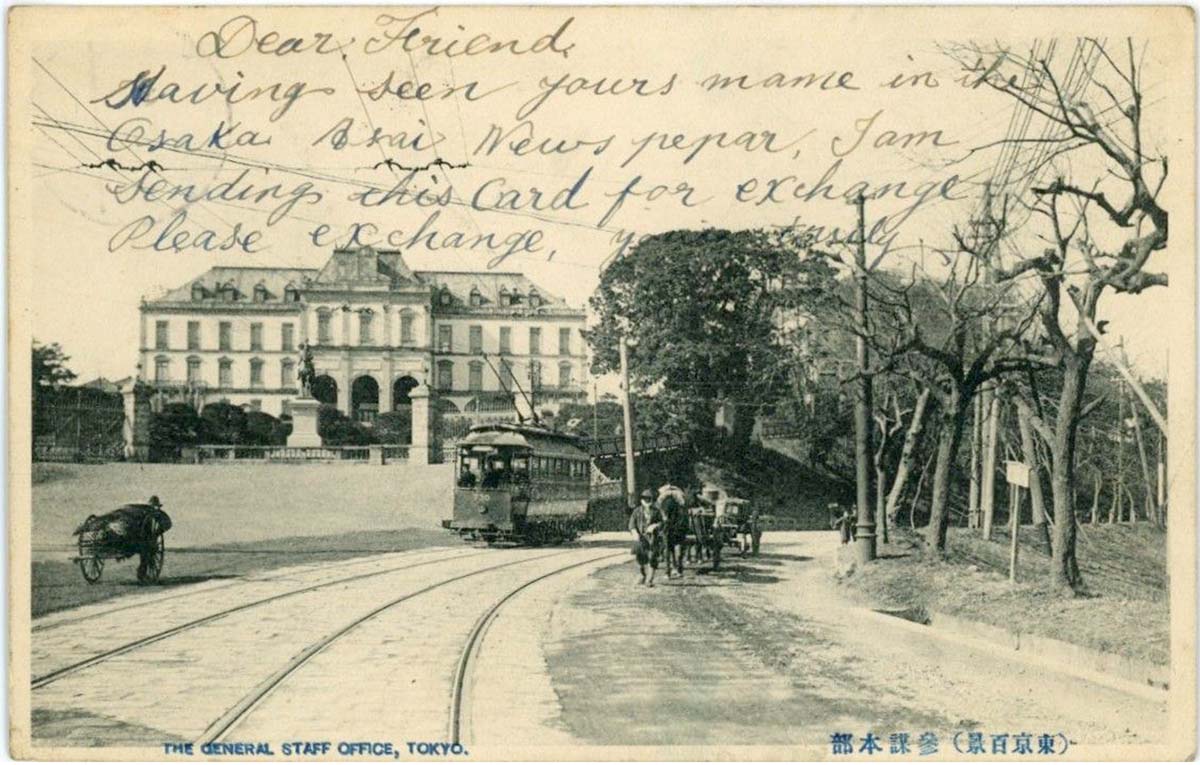 Dear Friend.
Having seen yours mame in the
Osaka Asai News pepar, I am
sending this Card for exchange
Please exchange,
THE GENERAL STAFF OFFICE, TOKYO.
部本謀參（景百京東）